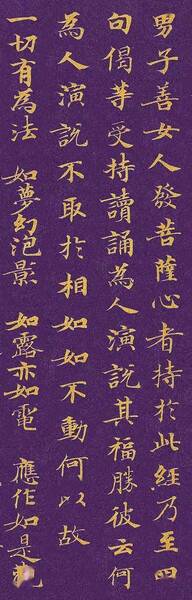 男子善女人發菩薩心者持於此經乃至四
句偈等受持讀誦為人演說其福勝彼云何
為人演說不取於相如如不動何以故
一切有為法 如夢幻泡影 如露亦如電 應作如是觀